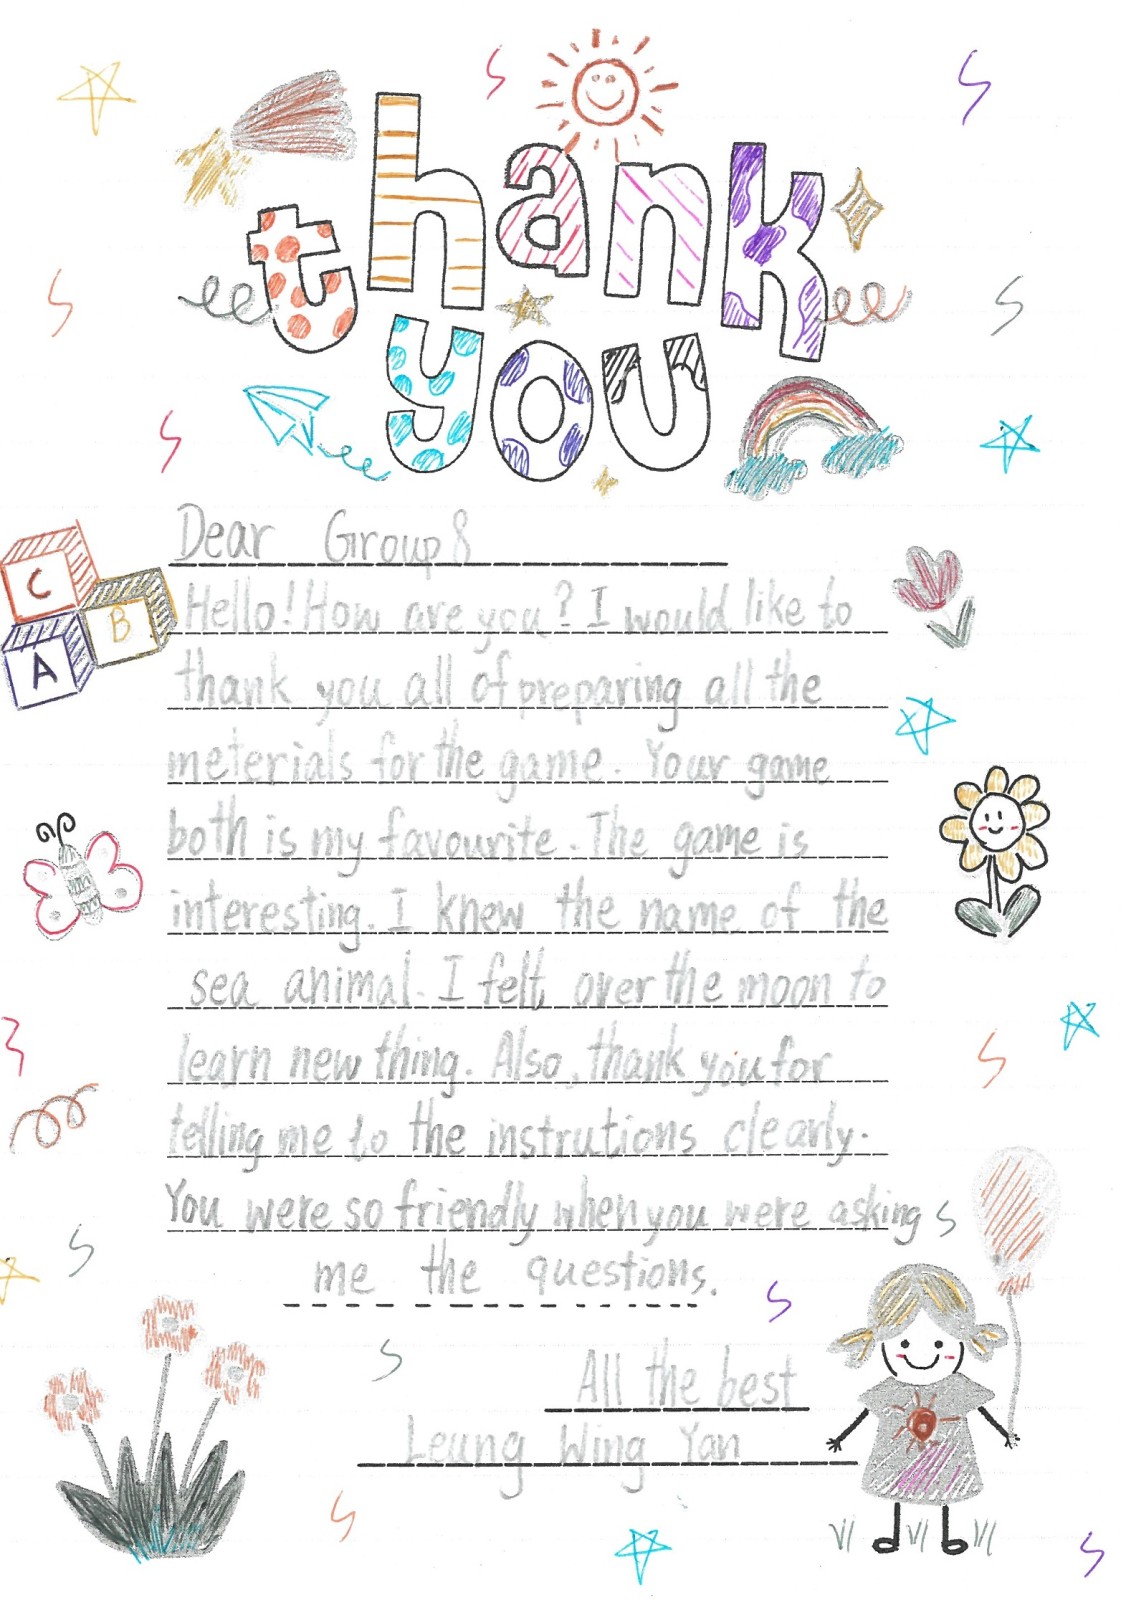 thank
you
Dear Group 8
C
B
A
Hello! How are you? I would like to
thank you all of preparing all the
meterials for the game. Your game
both is my favourite. The game is
interesting. I knew the name of the
sea animal. I felt over the moon to
learn new thing. Also, thank you for
telling me to the instrutions clearly.
You were so friendly when you were asking
me the questions.
All the best
Leung Wing Yan